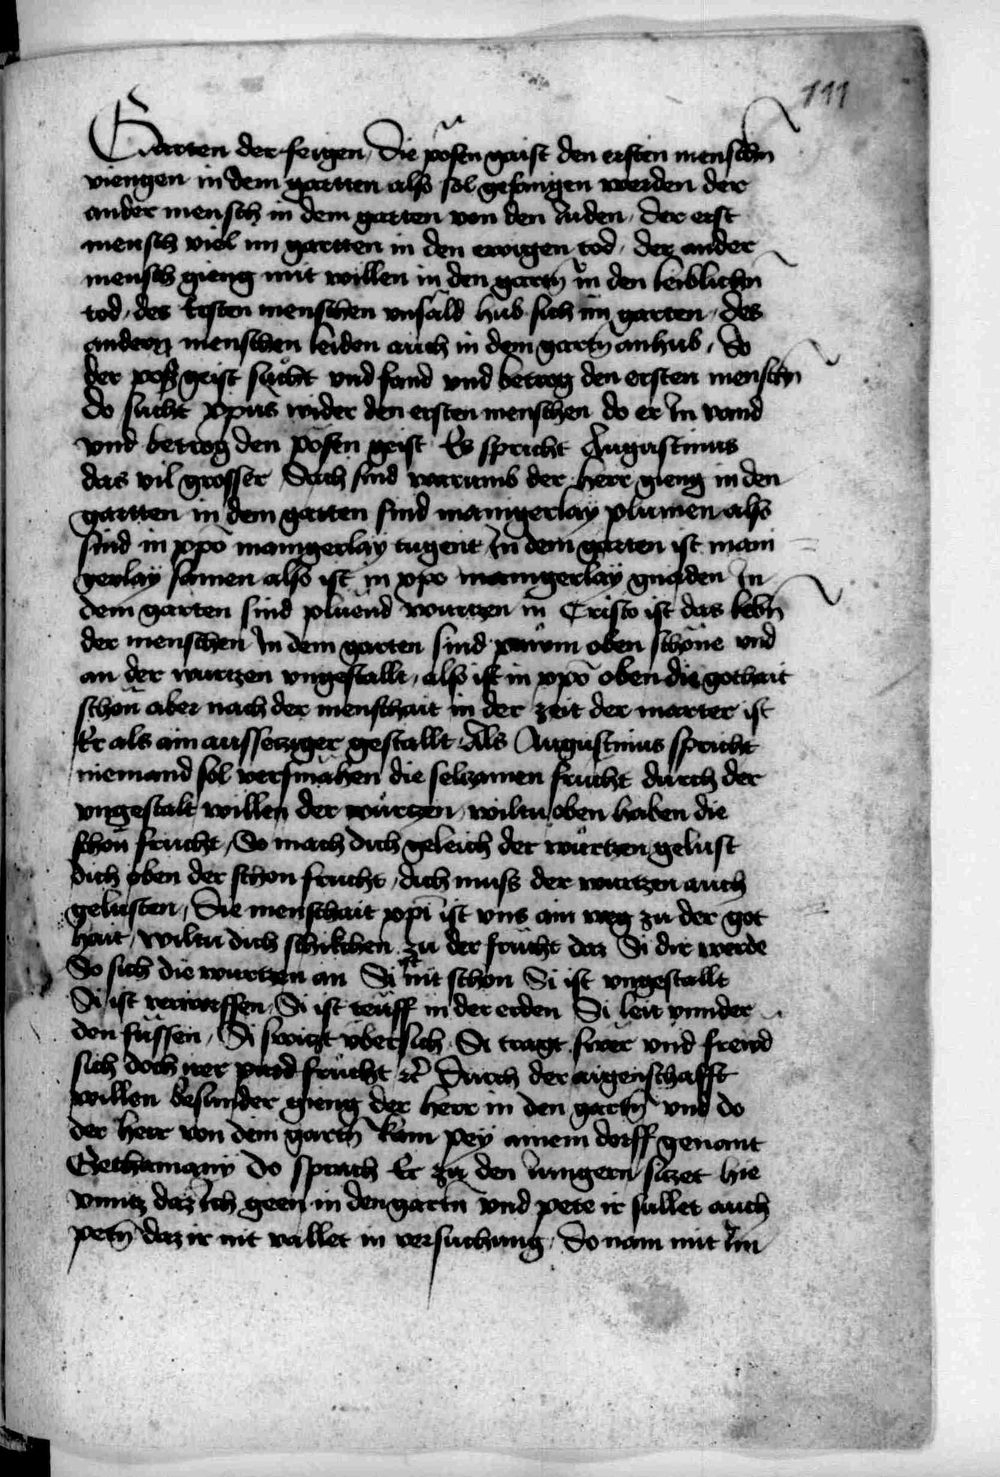 111
Gartten der feigen / Die posen gaist den ersten menschn̄
viengen in dem gartten also sol gefangen werden der
ander mensch in dem gartten von den Juden / der erst
mensch viel im gartten in den ewigen tod / der ander
mensch gieng mit willen in den gartn̄ in den leiblichn̄
tod / des Ersten menschen vnfăld hub sich im garten / des
andern menschen leiden auch in dem gartn̄ anhub / Do
der poß geist sucht vnd fand vnd betrog den ersten menschn̄
do sucht xp̄us wider den ersten menschen do er In vand
vnd betrog den pösen geist Es spricht Augustinus
das vil grosser Sach sind warumb der herr gieng in den
gartten in dem gartten sind mainigerlay plumen also
sind in xp̄o mainigerlay tugent In dem garten ist maini
gerlay samen also ist in xp̄o mainigerlay gnaden In
dem garten sind plüend wurtzen in Cristo ist das lebn̄
der menschen In dem garten sind pawm oben schöne vnd
an der wurtzen vngestallt / also ist in xp̄o oben die gothait
schön aber nach der menschait in der zeit der marter ist
Er als ain aussetziger gestallt Als Augustinus spricht
niemand sol versmăhen die seltzamen frucht durch der
vngestalt willen der wurtzen / wiltu oben haben die
schön frucht / So mach dich geleich der würtzen gelust
dich oben der schon frucht / dich muss der wurtzen auch
gelusten / Die menschait xp̄i ist vns ain weg zu der got
hait / wiltu dich schikchen zu der frucht daz Si dir werde
So sich die wurtzen an Si ist nit schon Si ist vngestallt
Si ist verworffen / Si ist teüff in der erden Si leit vnnder
den füssen / Si switzt übersich Si tragt swer vnd frewd
sich doch irer frücht ꝛc̄ Durch der aigenschafft
willen besunder gieng der herr in den gartn̄ vnd do
der herr von dem gartn̄ kam pey ainem dorff genant
Gethsamany do sprach Er zu den Jungern sitzet hie
vnntz daz Ich geen in den gartn̄ vnd pete ir sullet auch
petn̄ daz ir nit vallet in versuchung / Do nam mit Im